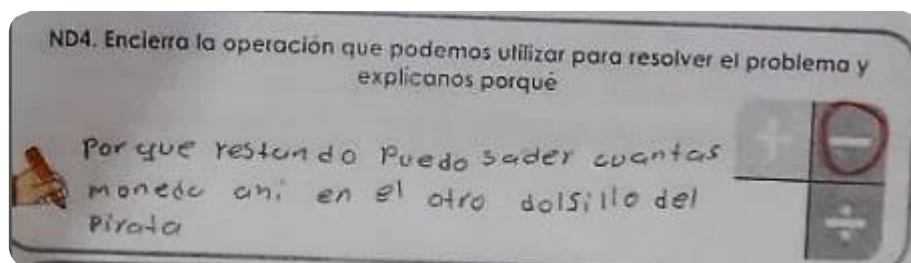 ND4. Encierra la operación que podemos utilizar para resolver el problema y
explicanos porqué
Por que restando Puedo sader cuantas
monedc ahi en el otro dolsillo del
Pirata
+ −
÷